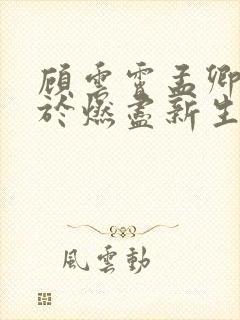 顾雲霄孟卿
於燃盡新生
風雲動